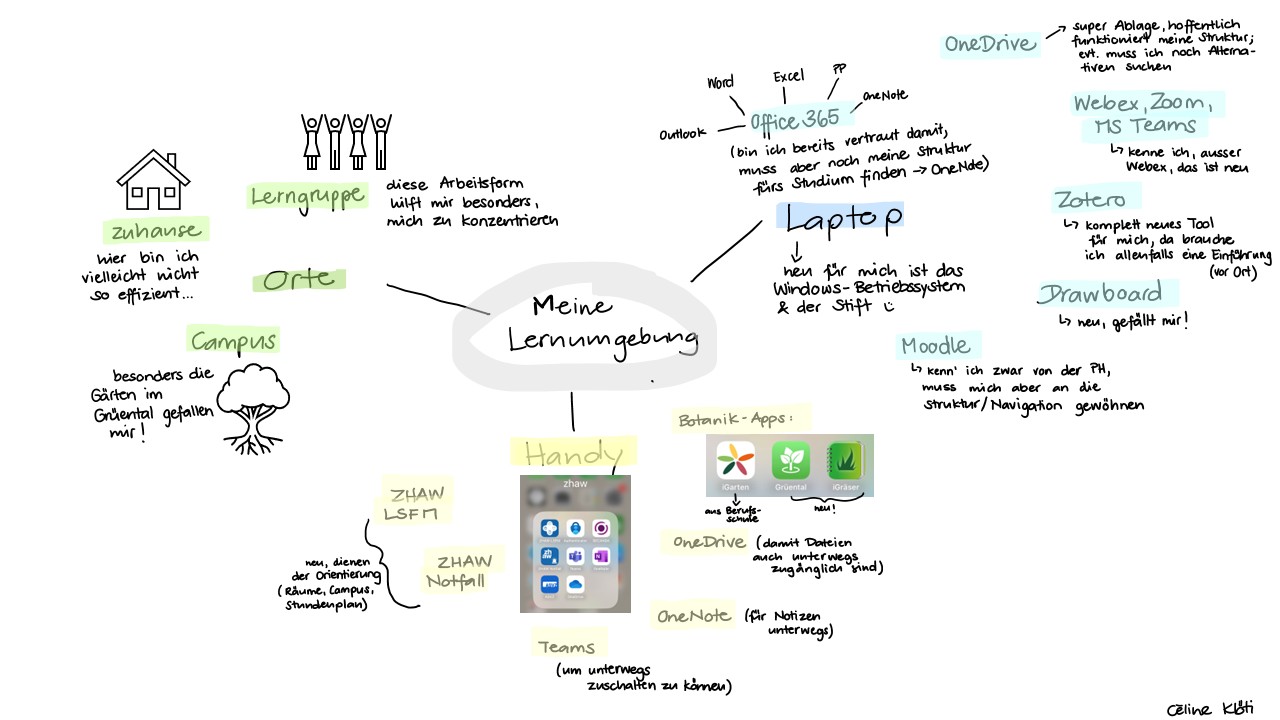 Meine
Lernumgebung
Orte
zuhause
hier bin ich
vielleicht nicht
so effizient...
Lerngruppe
diese Arbeitsform
hilft mir besonders,
mich zu konzentrieren
Campus
besonders die
Gärten im
Grüental gefallen
mir!
Laptop
neu für mich ist das
Windows-Betriebssystem
& der Stift
Office 365
Outlook
Word
Excel
PP
OneNote
(bin ich bereits vertraut damit,
muss aber noch meine Struktur
fürs Studium finden → OneNote)
OneDrive
super Ablage, hoffentlich
funktioniert meine Struktur;
evt. muss ich noch Alterna-
tiven suchen
Webex, Zoom,
MS Teams
kenne ich, ausser
Webex, das ist neu
Zotero
komplett neues Tool
für mich, da brauche
ich allenfalls eine Einführung
(vor Ort)
Drawboard
neu, gefällt mir!
Moodle
kenn' ich zwar von der PH,
muss mich aber an die
Struktur/Navigation gewöhnen
Handy
zhaw
Botanik-Apps:
iGarten
Grüental
iGräser
aus Berufs-
schule
neu!
OneDrive
(damit Dateien
auch unterwegs
zugänglich sind)
OneNote
(für Notizen
unterwegs)
Teams
(um unterwegs
zuschalten zu können)
ZHAW
LSFM
ZHAW
Notfall
neu, dienen
der Orientierung
(Räume, Campus,
Stundenplan)
Céline Klöti